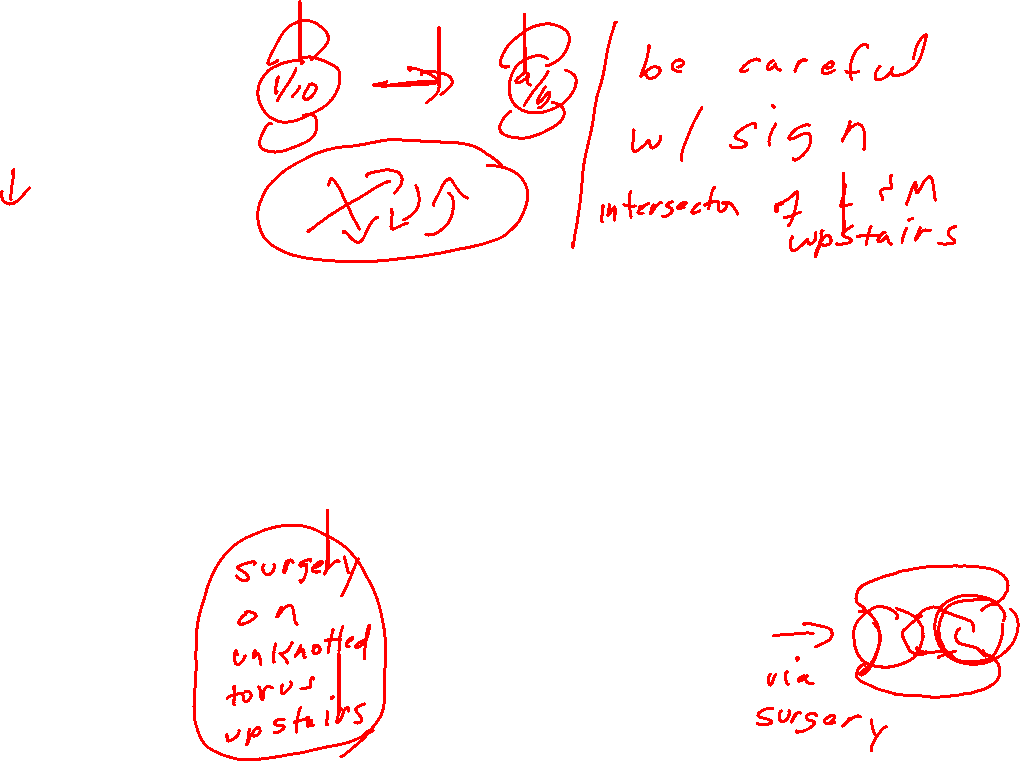 1/10
a/b
be careful
w/ sign
intersection of L & M
upstairs
surgery
on
unknotted
torus
upstairs
via
surgery